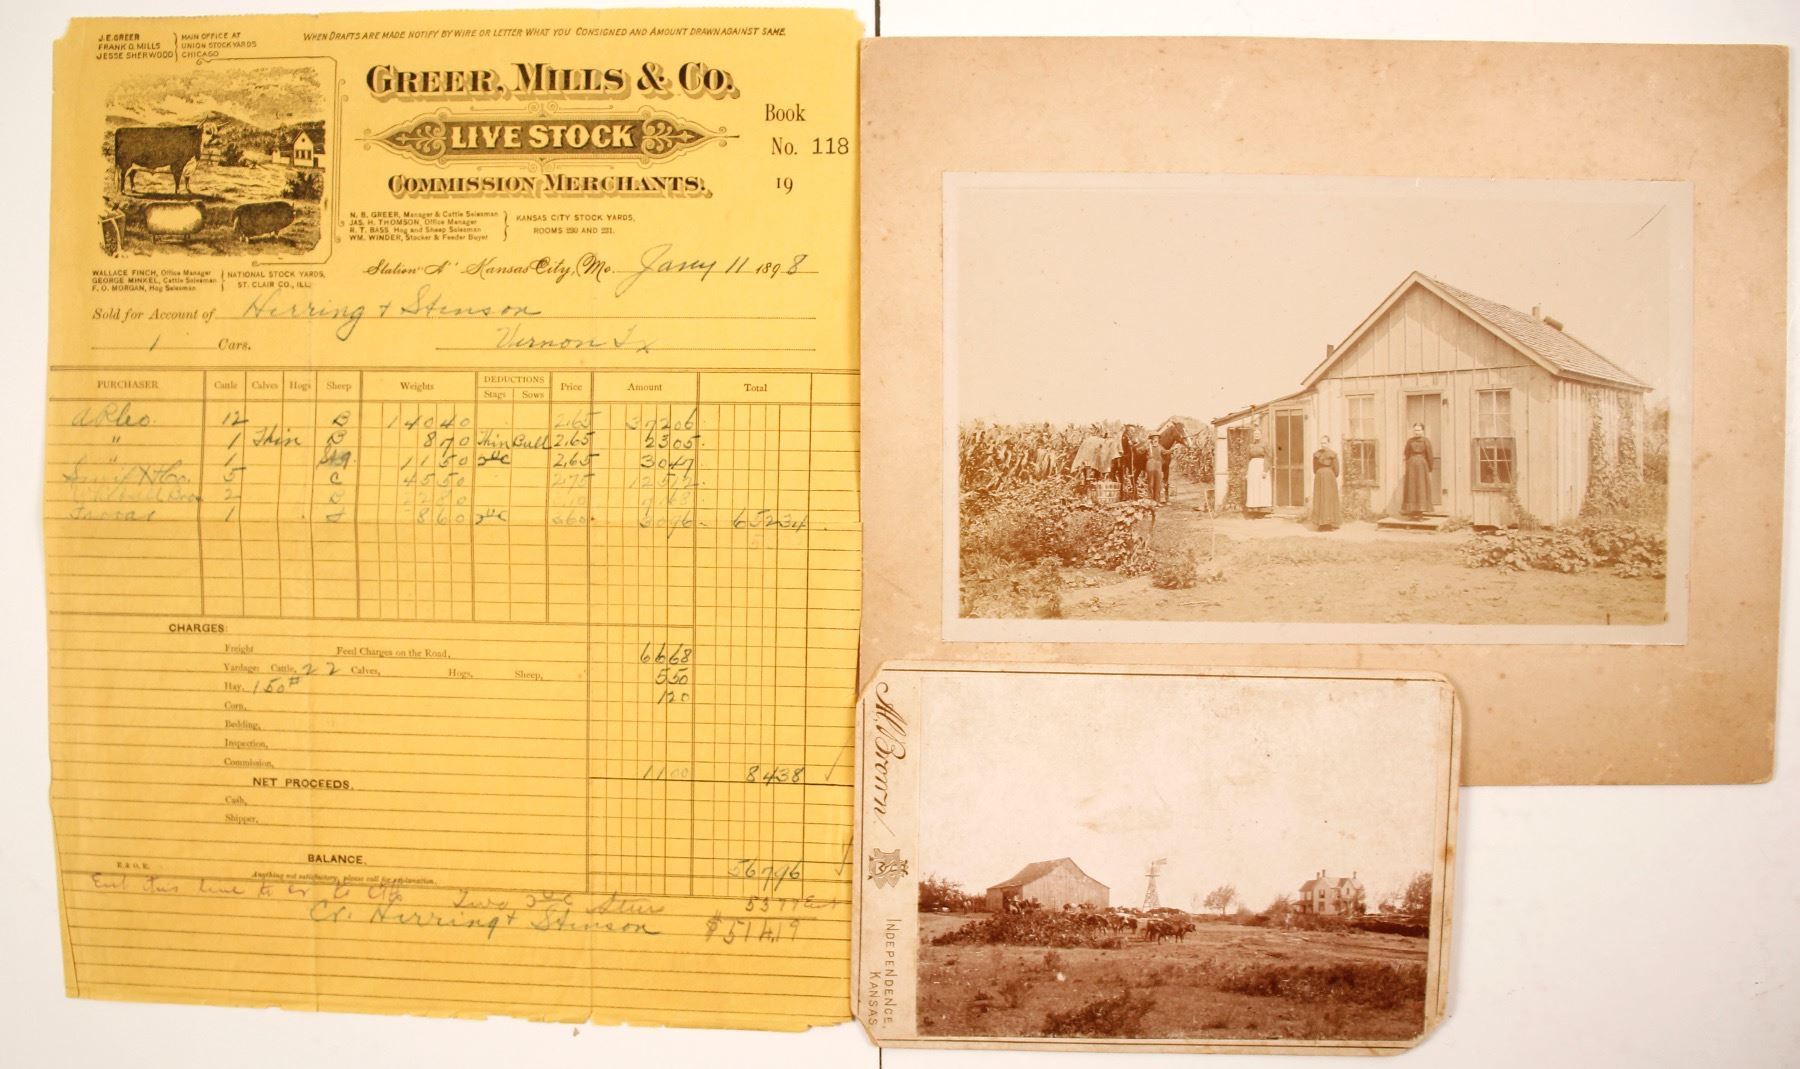 J. E. GREER
FRANK O. MILLS
JESSE SHERWOOD
MAIN OFFICE AT
UNION STOCK YARDS
CHICAGO
WHEN DRAFTS ARE MADE NOTIFY BY WIRE OR LETTER WHAT YOU CONSIGNED AND AMOUNT DRAWN AGAINST SAME.
GREER, MILLS & CO.
LIVE STOCK
COMMISSION MERCHANTS.
Book
No. 118
19
N. B. GREER, Manager & Cattle Salesman
JAS. H. THOMSON, Office Manager
R. T. BASS Hog and Sheep Salesman
WM. WINDER, Stocker & Feeder Buyer
KANSAS CITY STOCK YARDS,
ROOMS 230 AND 231.
WALLACE FINCH, Office Manager
GEORGE MINKEL, Cattle Salesman
F. O. MORGAN, Hog Salesman
NATIONAL STOCK YARDS,
ST. CLAIR CO., ILL.
Station "A" Kansas City, Mo. Jany 11 1898
Sold for Account of Herring & Stinson
1 Cars. Vernon Tx
PURCHASER Cattle Calves Hogs Sheep Weights DEDUCTIONS Price Amount Total
Stags Sows
12 B 14040 2.65 37206
" 1 Thin B 870 Thin Bull 2.65 2305
" 1 1150 2.65 3047
5 C 4550 2.75 12512
2 B
1 860 360 3096 65234
CHARGES:
Freight Feed Charges on the Road, 6668
Yardage: Cattle, 22 Calves, Hogs, Sheep, 550
Hay, 150# 120
Corn,
Bedding,
Inspection,
Commission, 1100 8438
NET PROCEEDS.
Cash,
Shipper,
BALANCE. 56796
E. & O. E. Anything not satisfactory, please call for explanation.
this Two 5377
Cr. Herring & Stinson $514.19
Al. Brown
INDEPENDENCE,
KANSAS